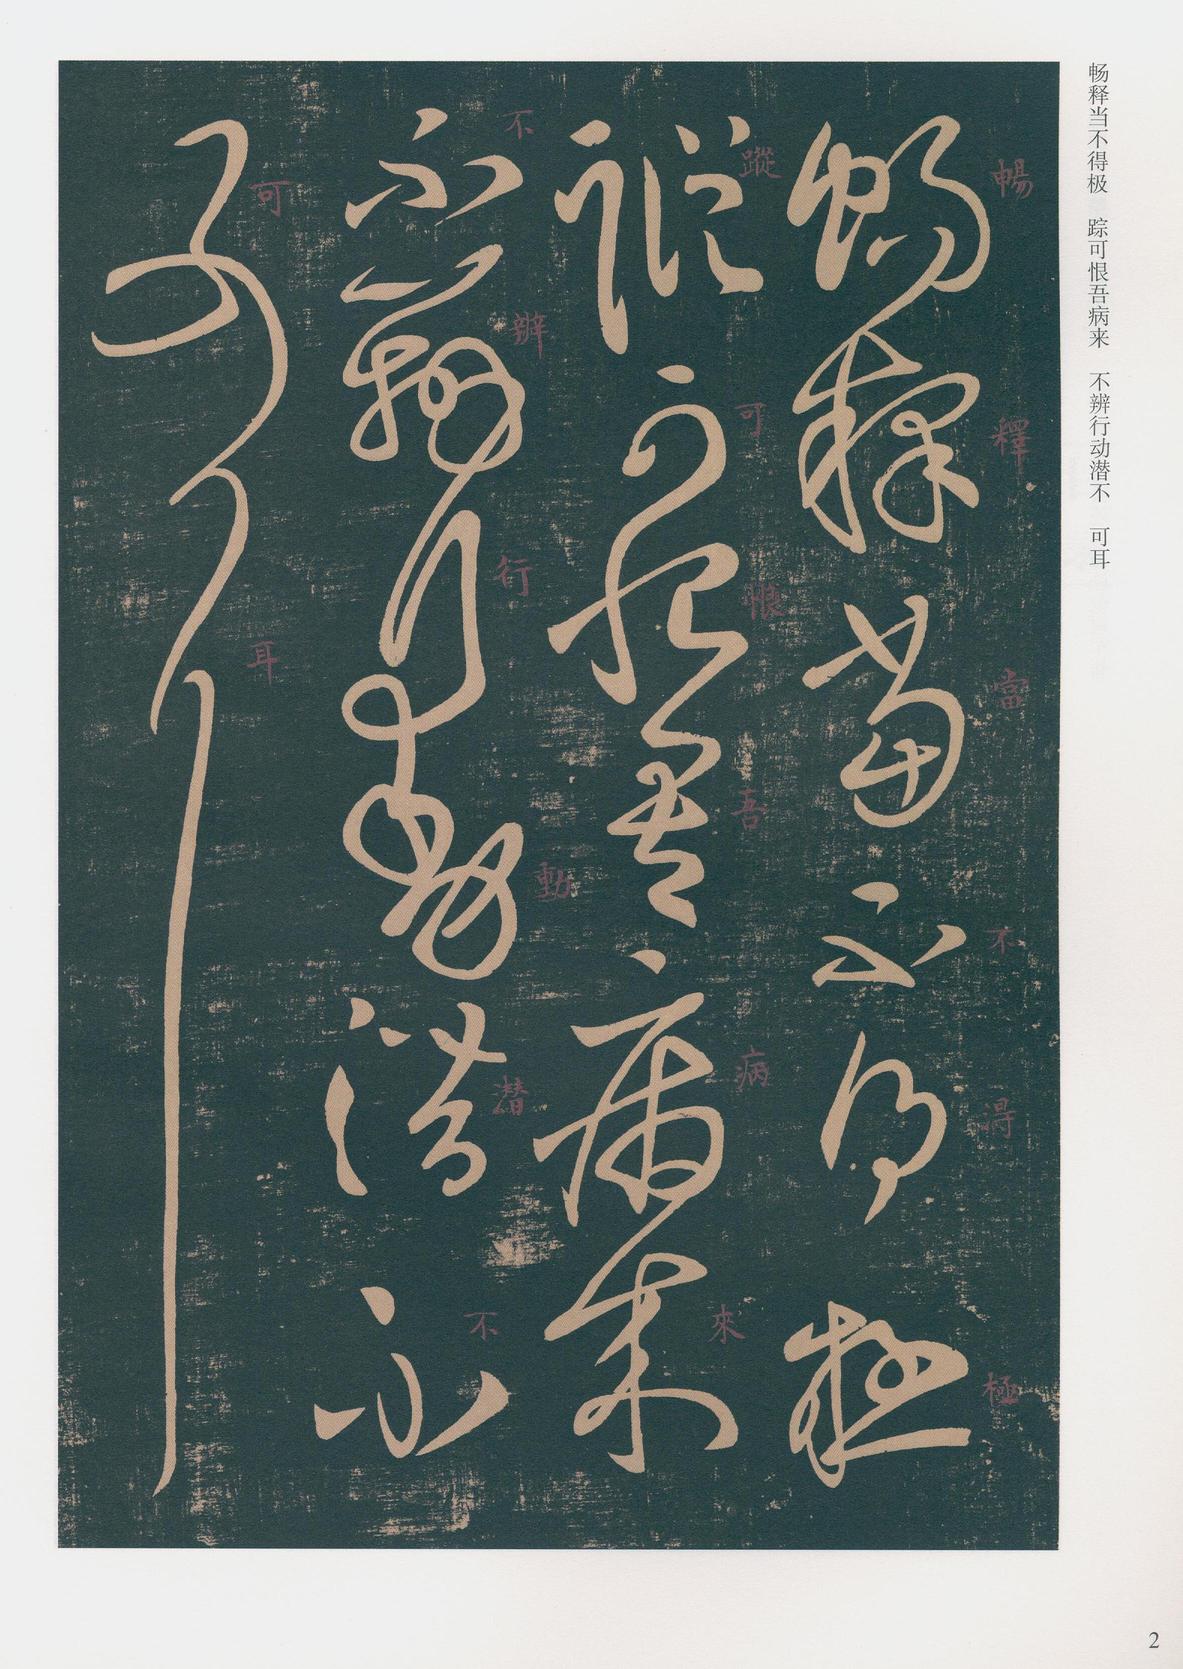 畅释当不得极　踪可恨吾病来　不辨行动潜不　可耳
暢釋當不得極
蹤可恨吾病來
不辦行動潜不
可耳
2